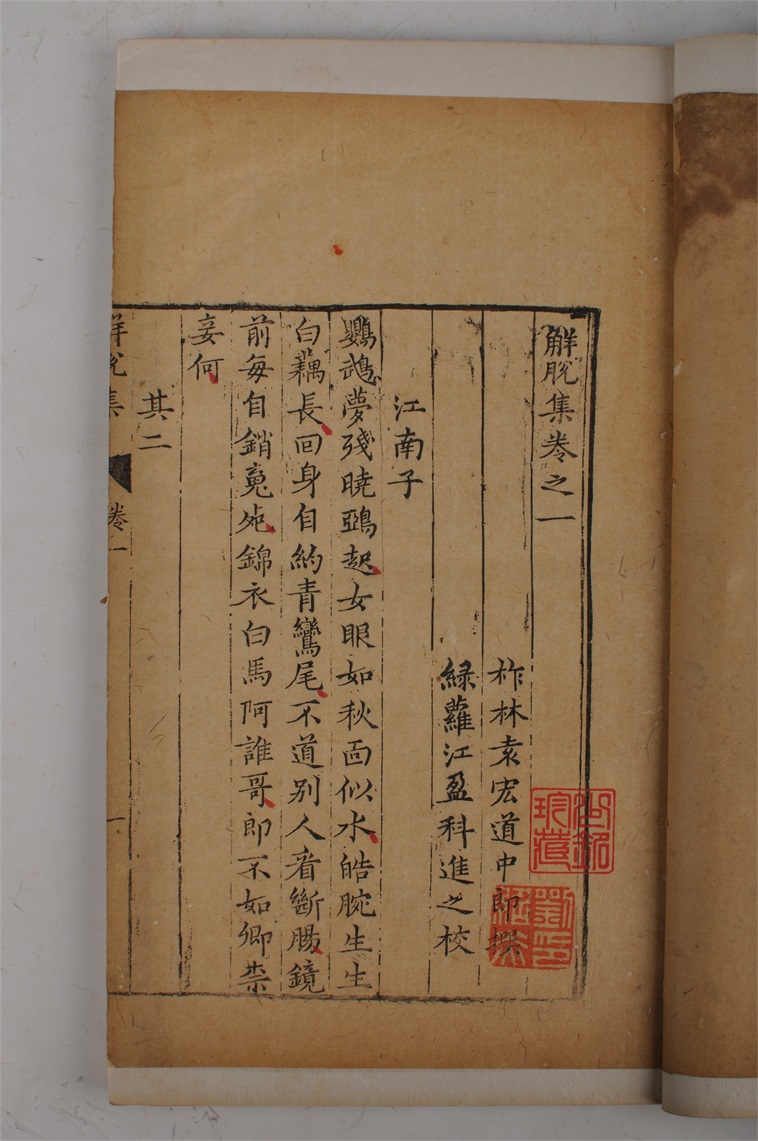 解脫集卷之一
柞林袁宏道中郎撰
綠蘿江盈科進之校
江南子
鸚鵡夢殘曉鵶起女眼如秋面似水皓腕生生
白藕長回身自約青鸞尾不道别人看斷腸鏡
前每自銷䰟死錦衣白馬阿誰哥郎不如卿柰
妾何
其二
解脫集
卷一
一